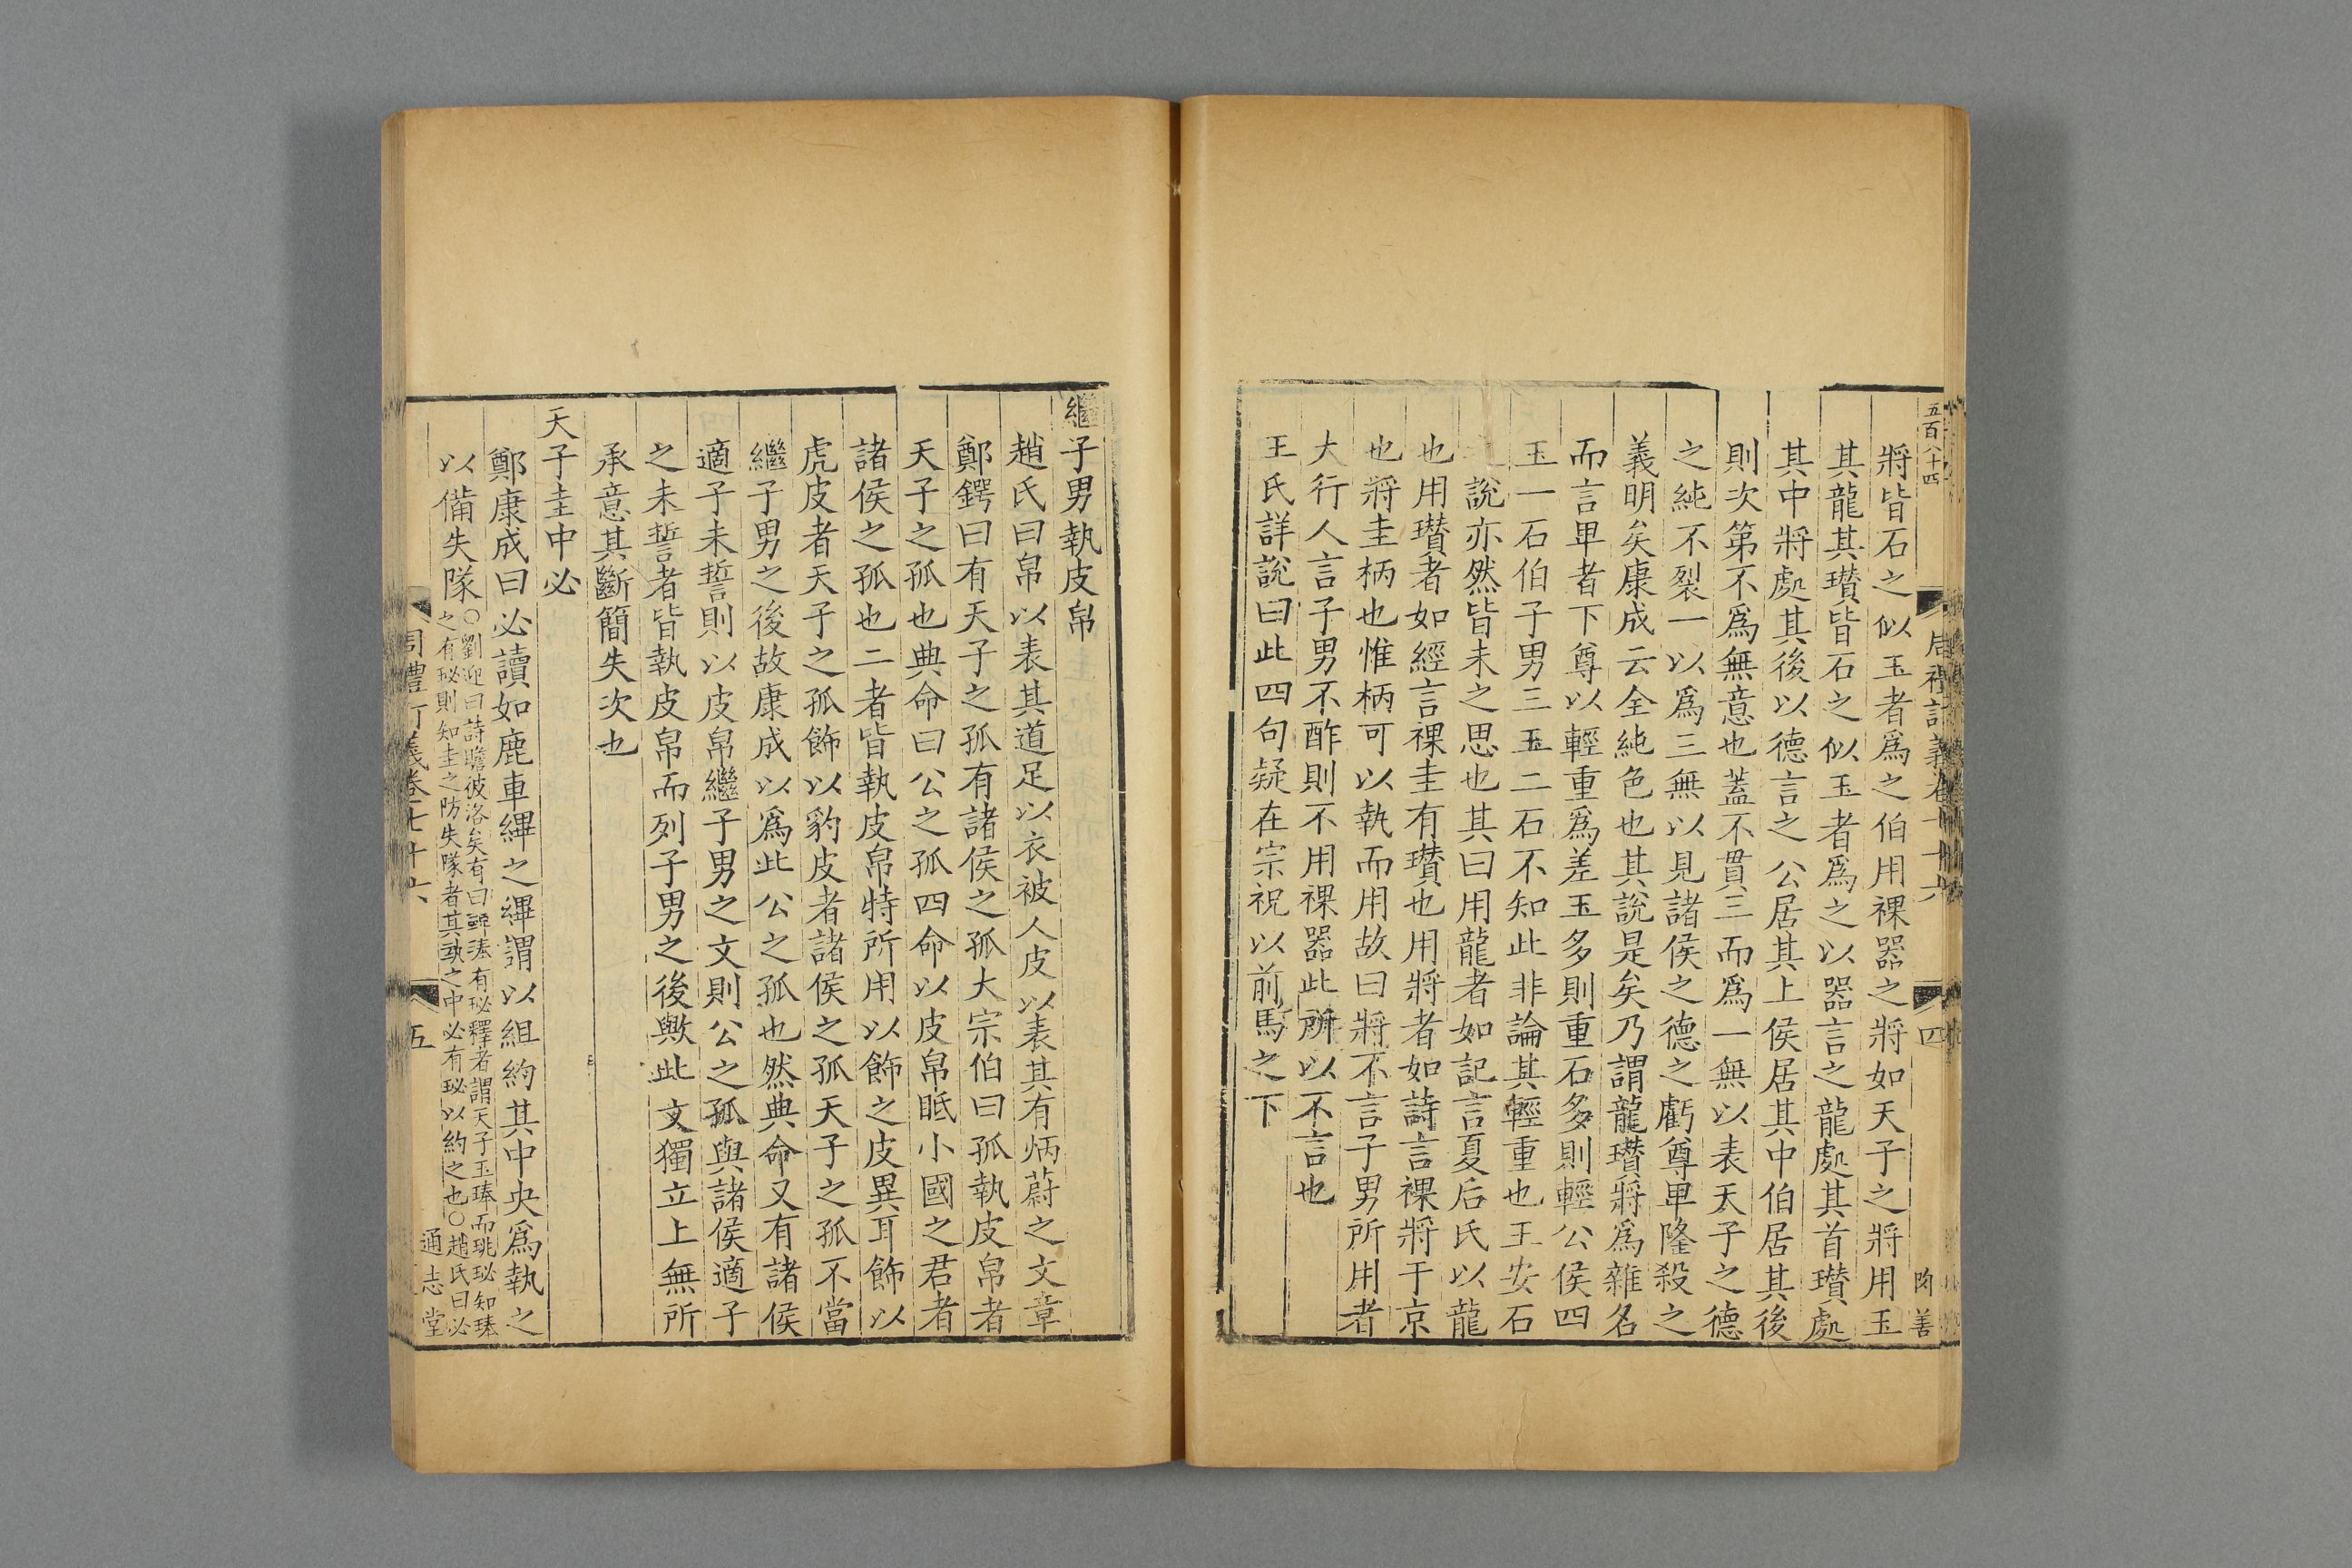 五百八十四
將皆石之似玉者爲之伯用祼器之將如天子之將用玉
其龍其瓚皆石之似玉者爲之以器言之龍處其首瓚處
其中將處其後以德言之公居其上侯居其中伯居其後
則次第不爲無意也蓋不貫三而爲一無以表天子之德
之純不裂一以爲三無以見諸侯之德之虧尊卑隆殺之
義明矣康成云全純色也其說是矣乃謂龍瓚將爲雜名
而言卑者下尊以輕重爲差玉多則重石多則輕公侯四
玉一石伯子男三玉二石不知此非論其輕重也王安石
說亦然皆未之思也其曰用龍者如記言夏后氏以龍
也用瓚者如經言祼圭有瓚也用將者如詩言祼將于京
也將圭柄也惟柄可以執而用故曰將不言子男所用者
大行人言子男不酢則不用祼器此所以不言也
王氏詳說曰此四句疑在宗祝以前馬之下
四
陶善
繼子男執皮帛
趙氏曰帛以表其道足以衣被人皮以表其有炳蔚之文章
鄭鍔曰有天子之孤有諸侯之孤大宗伯曰孤執皮帛者
天子之孤也典命曰公之孤四命以皮帛眡小國之君者
諸侯之孤也二者皆執皮帛特所用以飾之皮異耳飾以
虎皮者天子之孤飾以豹皮者諸侯之孤天子之孤不當
繼子男之後故康成以爲此公之孤也然典命又有諸侯
適子未誓則以皮帛繼子男之文則公之孤與諸侯適子
之未誓者皆執皮帛而列子男之後歟此文獨立上無所
承意其斷簡失次也
天子圭中必
鄭康成曰必讀如鹿車縪之縪謂以組約其中央爲執之
以備失隊
○劉迎曰詩瞻彼洛矣有曰鞞琫有珌釋者謂天子玉琫而珧珌知琫
之有珌則知圭之防失隊者其執之中必有珌以約之也○趙氏曰必
周禮訂義卷七十六
五
通志堂